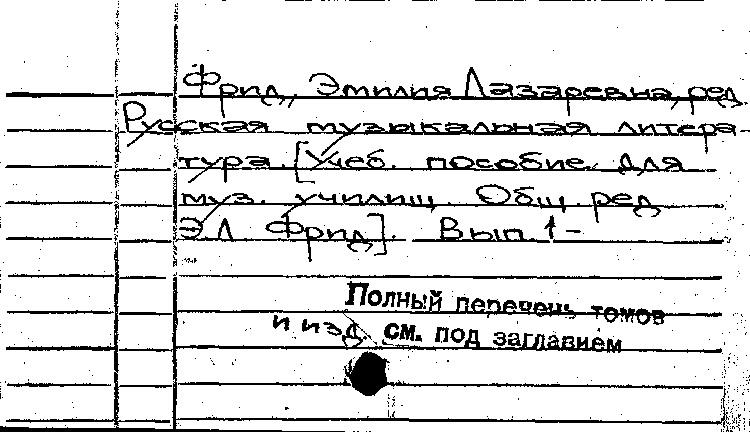 Фрид, Эмилия Лазаревна, ред.
Русская музыкальная литера-
тура. [Учеб. пособие для
муз. училищ. Общ. ред
Э.Л Фрид]. Вып. 1-
Полный перечень томов
и изд. см. под заглавием